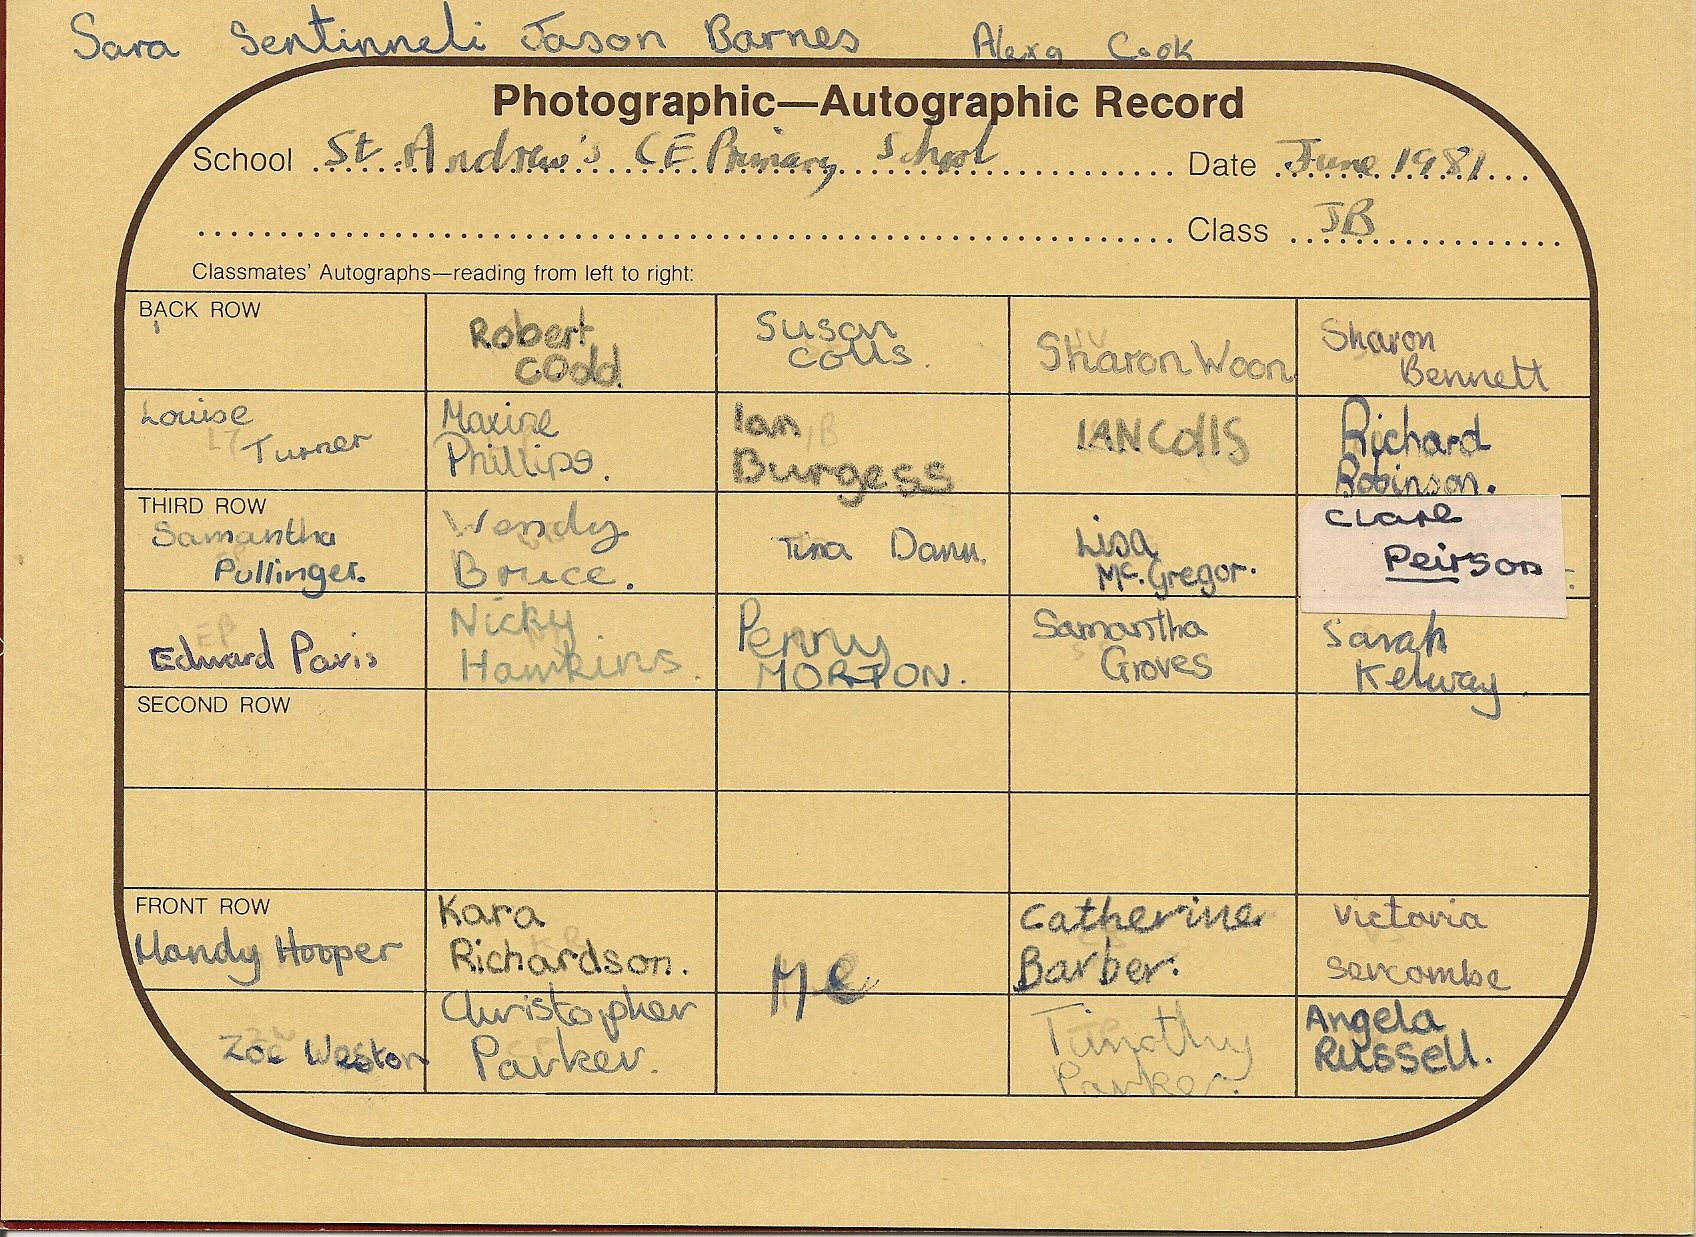 Sara Sentinneli Jason Barnes Alexa Cook
Photographic—Autographic Record
School St. Andrew's CE Primary School Date June 1981
Class JB
Classmates' Autographs—reading from left to right:
BACK ROW
Robert
Codd
Susan
Colls.
Sharon Woon
Sharon
Bennett
Louise
Turner
Maxine
Phillips.
Ian
Burgess
IAN Colls
Richard
Robinson.
THIRD ROW
Samantha
Pullinger.
Wendy
Bruce.
Tina Dann.
Lisa
Mc.Gregor.
Clare
Peirson
Edward Paris
Nicky
Hawkins.
Penny
MORTON.
Samantha
Groves
Sarah
Kelway.
SECOND ROW
FRONT ROW
Mandy Hooper
Kara
Richardson.
Me
Catherine
Barber.
Victoria
Sercombe
Zoe Weston
Christopher
Parker.
Timothy
Parker.
Angela
Russell.